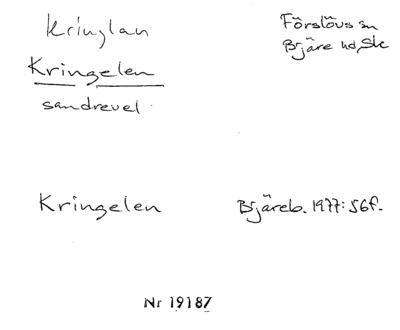 Kringlan
Förslövs sn
Bjäre hd, Sk
Kringelen
sandrevel
Kringelen
Bjäreb. 1977: 56f.
Nr 19187